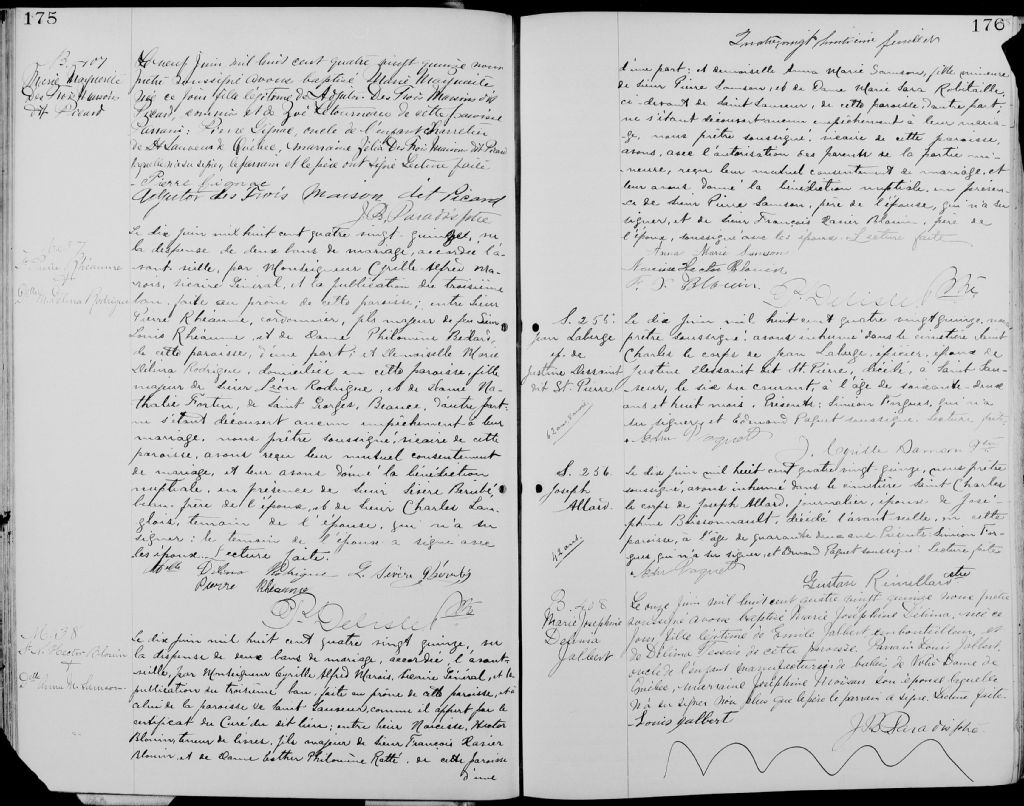 175
B. 107
Marie Marguerite
Des Trois Maisons
dit Picard
Le neuf Juin mil huit cent quatre vingt quinze nous
prêtre soussigné avons baptisé Marie Marguerite
née ce jour fille légitime de Adjutor Des Trois Maisons dit
Picard, et de Zoé Letourneau de cette paroisse
Parrain: Pierre Gignac, oncle de l'enfant
de St Sauveur de Québec, marraine Zélia Des Trois Maisons dit Picard
le parrain et le père ont signé Lecture faite
Pierre Gignac
Adjutor des Trois Maison dit Picard
J. B. Paradis ptre
M. 37
Pierre Rhéaume
&
Délina Rodrigue
Le dix Juin mil huit cent quatre vingt quinze, vu
la dispense de deux bans de mariage, accordée l'a-
vant veille, par Monseigneur Cyrille Alfred Ma-
rois, vicaire Général, et la publication du troisième
ban, faite au prône de cette paroisse; entre Sieur
Pierre Rhéaume, cordonnier, fils majeur de feu Sieur
Louis Rhéaume, et de Dame Philomène Bedard,
de cette paroisse, d'une part; et Demoiselle Marie
Délina Rodrigue, domiciliée en cette paroisse, fille
majeur de Sieur Léon Rodrigue, et de Dame Na-
thalie Fortin, de Saint Georges, Beauce, d'autre part;
ne s'étant découvert aucun empêchement à leur
mariage, nous prêtre soussigné, vicaire de cette
paroisse, avons reçu leur mutuel consentement
de mariage, et leur avons donné la bénédiction
nuptiale, en présence de Sieur Sévère Bérubé
beau-frère de l'époux, et de Sieur Charles Lan-
glois, témoin de l'épouse, qui n'a su
signer; le témoin de l'époux a signé avec
les époux. Lecture faite.
Délina Rodrigue L. Sévère Bérubé
Pierre Rhéaume
P. Delisle Ptre
M. 38
N. Hector Blouin
&
Dlle Anna M. Samson
Le dix Juin mil huit cent quatre vingt quinze, vu
la dispense de deux bans de mariage, accordée l'avant-
veille, par Monseigneur Cyrille Alfred Marois, vicaire Général, et la
publication du troisième ban, faite au prône de cette paroisse, et à
celui de la paroisse de Saint Sauveur, comme il appert par le
certificat du Curé du dit lieu; entre Sieur Narcisse, Hector
Blouin, teneur de livres, fils majeur de Sieur François Xavier
Blouin et de Dame Esther Philomène Ratté, de cette paroisse
d'une
176
Quatrevingt huitième feuillet
d'une part; et demoiselle Anna Marie Samson, fille mineure
de Sieur Pierre Samson, et de Dame Marie Sara Robitaille,
ci-devant de Saint Sauveur, de cette paroisse, d'autre part;
ne s'étant découvert aucun empêchement à leur maria-
ge, nous prêtre soussigné, vicaire de cette paroisse,
avons, avec l'autorisation des parents de la partie mi-
neure, reçu leur mutuel consentement de mariage, et
leur avons donné la bénédiction nuptiale, en présen-
ce de Sieur Pierre Samson, père de l'épouse, qui n'a su
signer, et de Sieur François Xavier Blouin, père de
l'époux, soussigné avec les époux. Lecture faite
Anna Marie Samson
Narcisse Hector Blouin
F. X. Blouin
P. Delisle Ptre
S. 255.
Jean Laberge
ép. de
Justine Dessaint
dit St. Pierre
62 ans 8 mois
Le dix Juin mil huit cent quatre vingt quinze, nous
prêtre soussigné, avons inhumé dans le cimetière Saint
Charles le corps de Jean Laberge, épicier, époux de
Justine Dessaint dit St Pierre, décédé, à Saint Sau-
veur, le six du courant, à l'âge de soixante-deux
ans et huit mois. Présents: Siméon Turgeon, qui n'a
su signer, et Edmond Paquet soussigné. Lecture faite.
Paquet
J. Cyrille Samson Ptre
S. 256.
Joseph
Allard.
42 ans.
Le dix Juin mil huit cent quatre vingt quinze, nous prêtre
soussigné, avons inhumé dans le cimetière Saint Charles
le corps de Joseph Allard, journalier, époux de José-
phine Boissonnault, décédé l'avant-veille, en cette
paroisse, à l'âge de quarante deux ans. Présents: Siméon Tur-
geon, qui n'a su signer, et Edmond Paquet soussigné. Lecture faite
Paquet
Gustave Rémillard ptre
B. 108
Marie Joséphine
Délvina
Jalbert
Le onze Juin mil huit cent quatre vingt quinze nous prêtre
soussigné avons baptisé Marie Joséphine Délvina, née ce
jour fille légitime de Emile Jalbert embouteilleur, et
de Délvina Lessard de cette paroisse, Parrain Louis Jalbert,
oncle de l'enfant manufacturier de balais, de Notre Dame de
Québec, marraine Joséphine Moisan son épouse laquelle
n'a su signer non plus que le père le parrain a signé. Lecture faite
Louis Jalbert
J. B. Paradis ptre